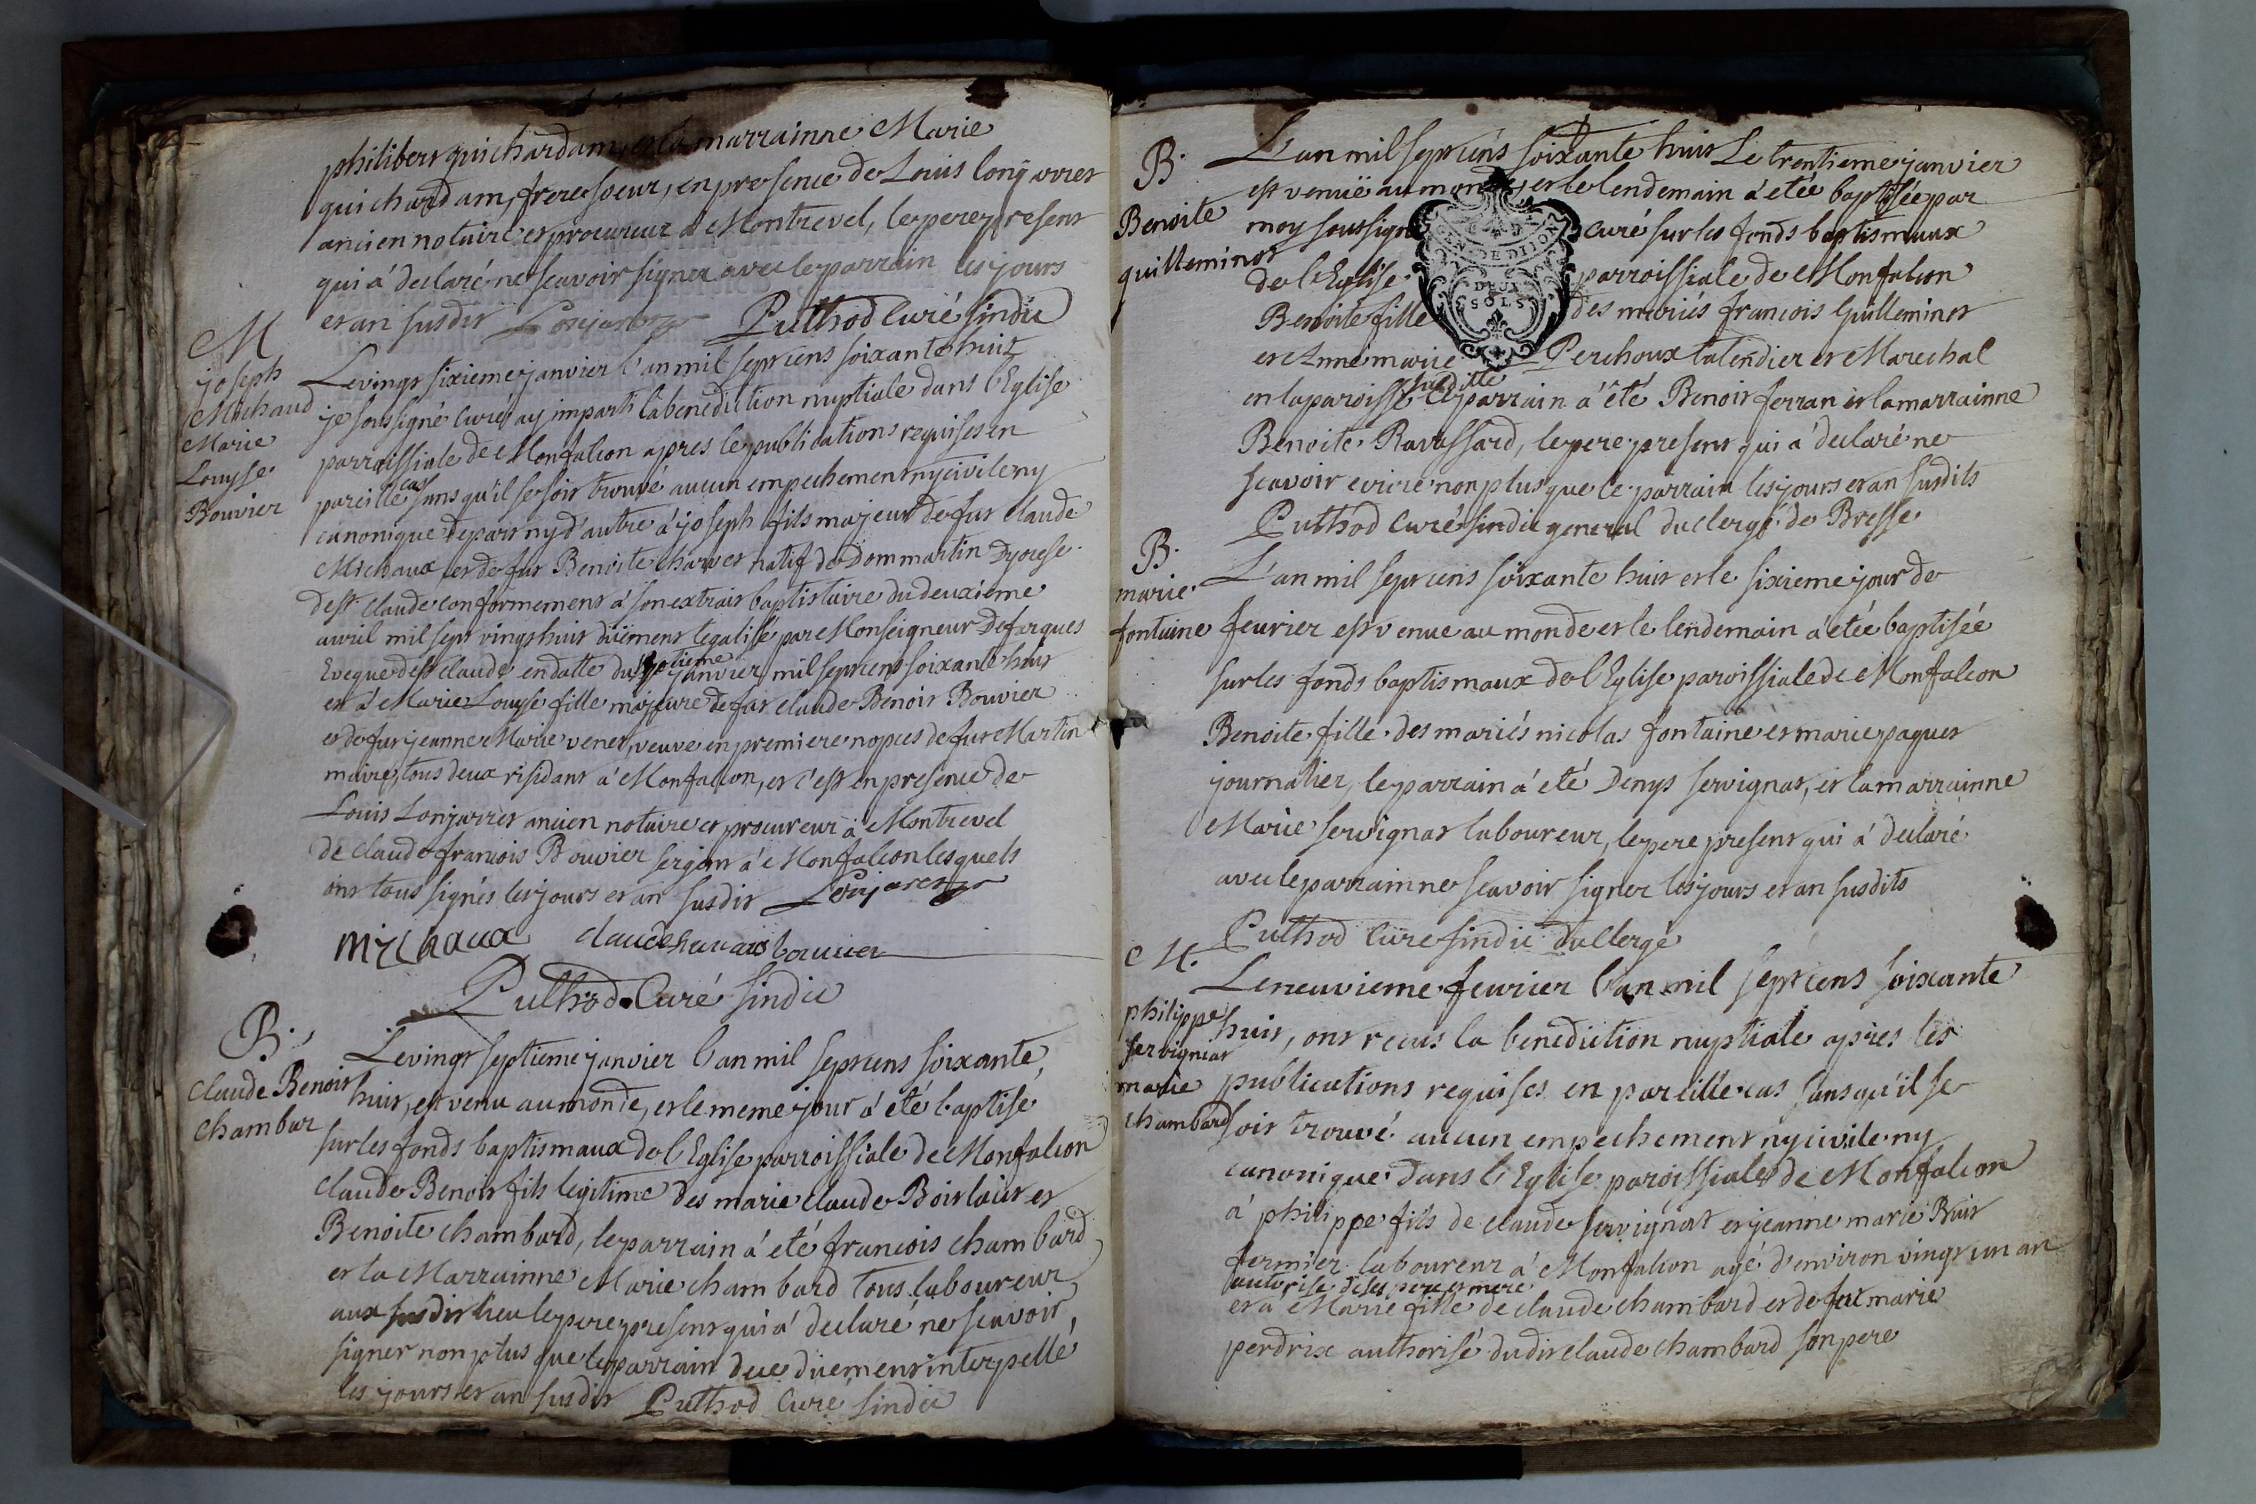 philibert guichardam, et la marrainne Marie
guichardam, frere soeur, en presence de Louis lonjarret
ancien notaire et procureur à Montrevel, le pere present
qui à declaré ne scavoir signer avec le parrain les jours
et an susdit Lonjarret Puthod Curé sindic
M
joseph
Michaud
Marie
Louyse
Bouvier
Le vingt sixieme janvier l'an mil sept cens soixante huit
je soussigné curé ay imparti la benediction nuptiale dans l'Eglise
parroissiale de Monfalcon apres les publications requises en
pareille cas sans qu'il se soit trouvé aucun empechement ny civile ny
canonique de part ny d'autre à joseph fils majeur de fut claude
Michaux et de fut Benoite charvet natif de Dommartin Dyocese
de st claude conformement à son extrait baptistaire du deuxième
avril mil sept vingt huit düement legalisé par Monseigneur Defargues
Eveque de st claude en datte du septieme janvier mil sept cens soixante huit
et à Marie Louyse fille majeure de fut claude Benoit Bouvier
et de fut jeanne Marie venet, veuve en premiere nopces de fut Martin
maire, tous deux residant à Monfalcon, et c'est en presence de
Louis Lonjarret ancien notaire et procureur à Montrevel
de claude francois Bouvier sergent à Monfalcon lesquels
ont tous signés les jours et an susdit Lonjarret
Michaux claude francois bouvier
Puthod Curé sindic
B.
Claude Benoit
chambar
Le vingt septieme janvier l'an mil sept cens soixante
huit, est venu au monde, et le meme jour à été baptise
sur les fonds baptismaux de l'Eglise parroissiale de Monfalcon
claude Benoit fils legitime des marie claude Boisclair et
Benoite chambard, le parrain à eté francois chambard
et la Marrainne Marie chambard tous laboureur
aux susdit lieu le pere present qui à declaré ne scavoir
signer non plus que le parrain de ce düement interpellé
les jours et an susdit Puthod Curé sindic
B.
Benoite
guilleminot
L'an mil sept cens soixante huit Le trentieme janvier
est venuë au monde, et le lendemain à etée baptisée par
moy soussigné curé sur les fonds baptismaux
de l'Eglise parroissiale de Monfalcon
Benoite fille des mariés francois Guilleminot
et Anne marie Perchoux talendier et Marechal
en la paroisse susditte Le parrain à été Benoit ferran et la marrainne
Benoite Ravassard, le pere present qui à declaré ne
scavoir ecrire non plus que le parrain les jours et an susdits
Puthod Curé sindic general du clergé de Bresse
GEN DE DIJON
DEUX
SOLS
B.
marie
fontaine
L'an mil sept cens soixante huit et le sixieme jour de
fevrier est venue au monde et le lendemain à etée baptisée
sur les fonds baptismaux de l'Eglise paroissiale de Monfalcon
Benoite fille des mariés nicolas fontaine et marie paquet
journalier, le parrain à eté Denys servignat, et la marrainne
Marie servignat laboureur, le pere present qui à declaré
avec le parrain ne scavoir signer les jours et an susdits
Puthod Curé sindic du Clergé
M.
philippe
servignat
marie
chambard
Le neuvieme fevrier l'an mil sept cens soixante
huit, ont recus la benediction nuptiale apres les
publications requises en pareille cas sans qu'il se
soit trouvé aucun empechement ny civile ny
canonique dans l'Eglise paroissiale de Monfalcon
à philippe fils de claude servignat et jeanne marie Buit
fermier laboureur à Monfalcon agé d'environ vingt un an
autorisé de ses pere et mere
et à Marie fille de claude chambard et de fut marie
perdrix authorisé dudit claude chambard son pere